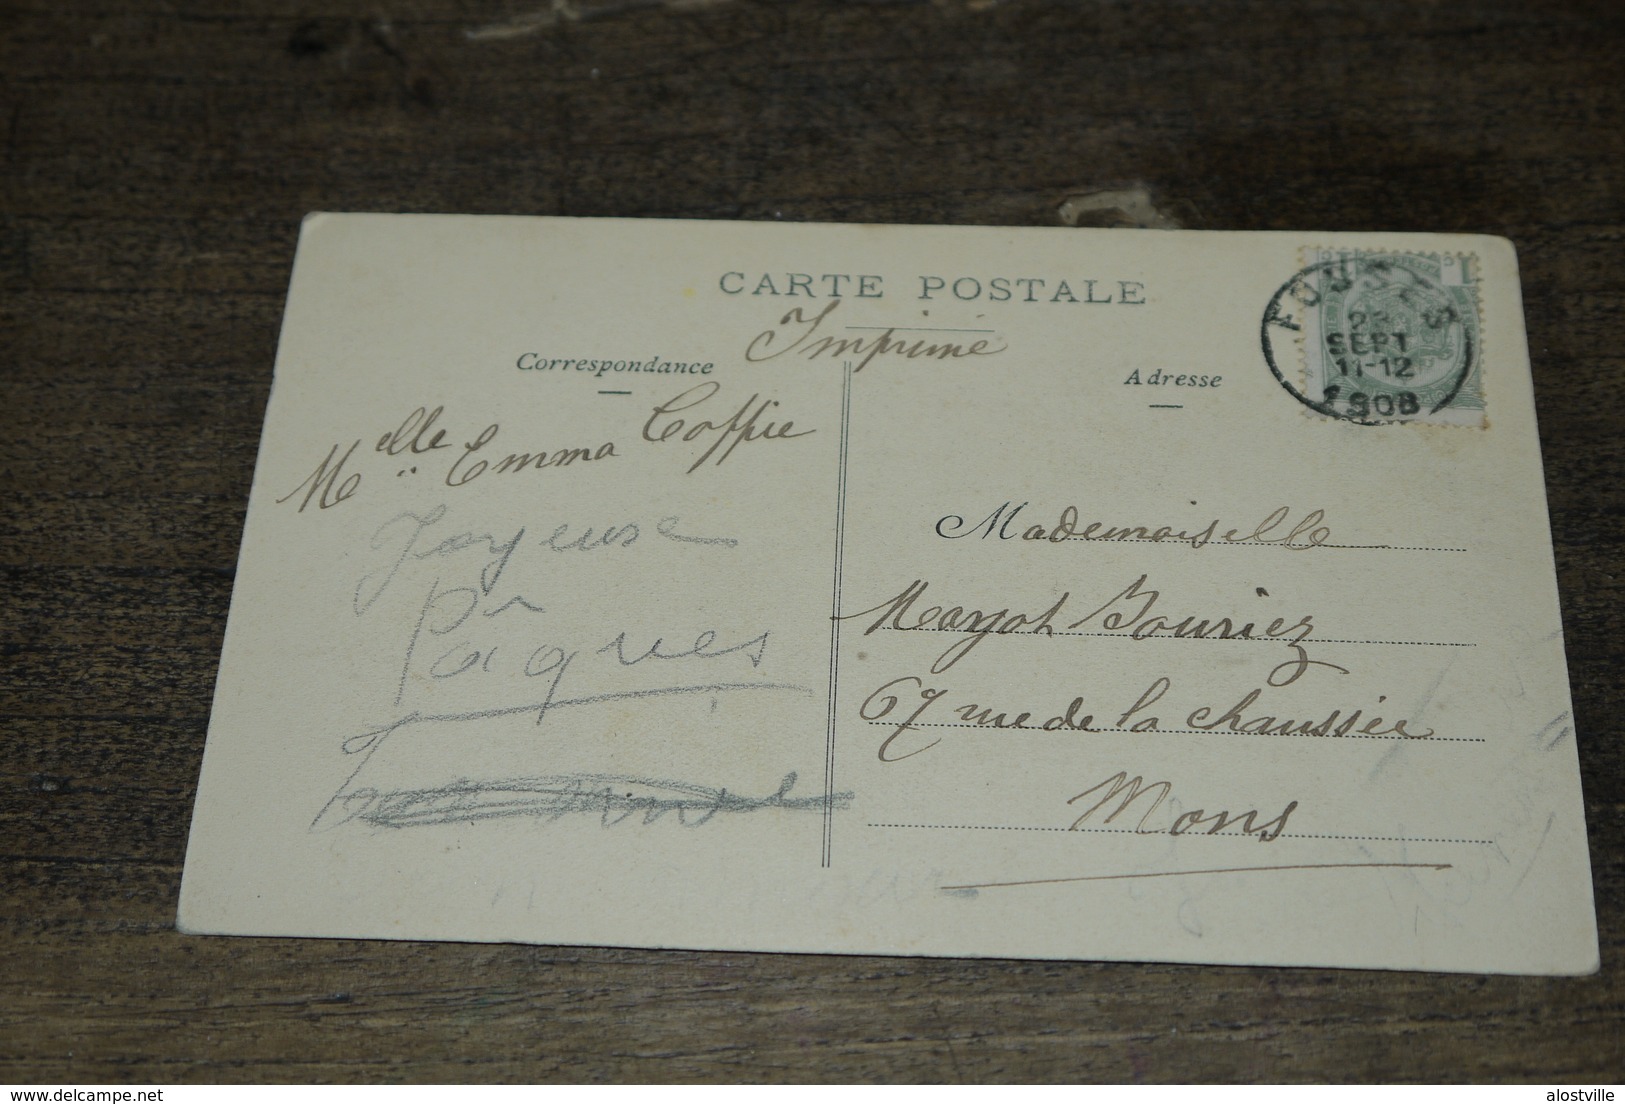 CARTE POSTALE
Imprimé
Correspondance
Adresse
22
SEPT
11-12
1908
Melle Emma Coppie
Joyeuse
Pâques
Mademoiselle
Margot Bouriez
67 rue de la chaussée
Mons
alostville